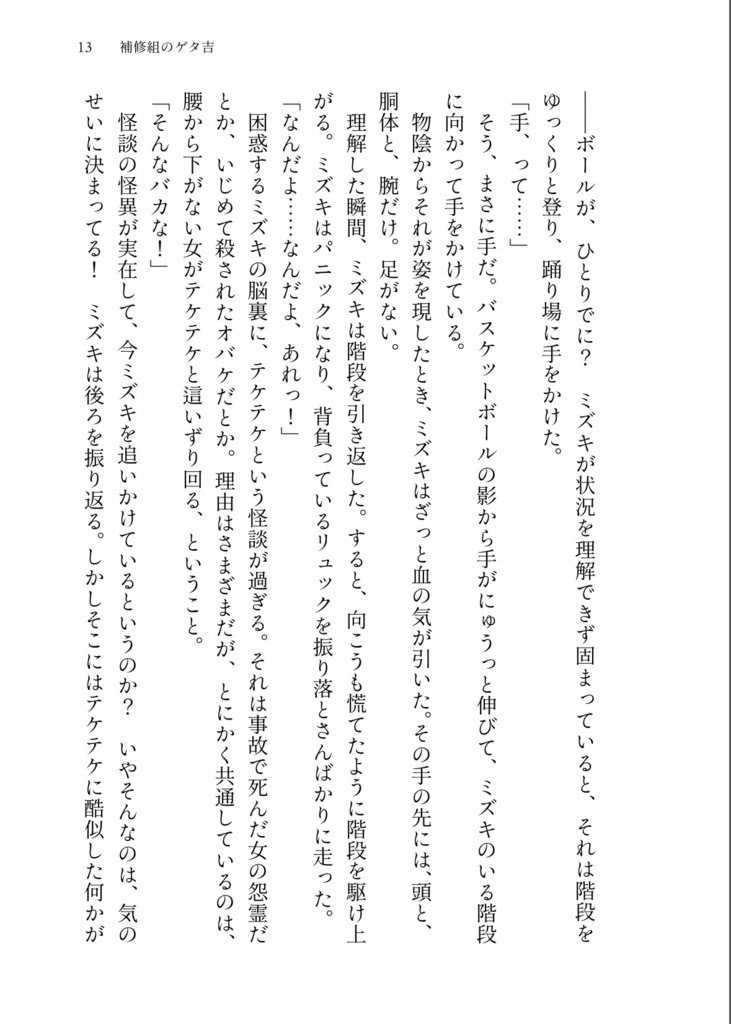 13　補修組のゲタ吉
――ボールが、ひとりでに？　ミズキが状況を理解できず固まっていると、それは階段を
ゆっくりと登り、踊り場に手をかけた。
「手、って……」
　そう、まさに手だ。バスケットボールの影から手がにゅうっと伸びて、ミズキのいる階段
に向かって手をかけている。
　物陰からそれが姿を現したとき、ミズキはざっと血の気が引いた。その手の先には、頭と、
胴体と、腕だけ。足がない。
　理解した瞬間、ミズキは階段を引き返した。すると、向こうも慌てたように階段を駆け上
がる。ミズキはパニックになり、背負っているリュックを振り落とさんばかりに走った。
「なんだよ……なんだよ、あれっ！」
　困惑するミズキの脳裏に、テケテケという怪談が過ぎる。それは事故で死んだ女の怨霊だ
とか、いじめて殺されたオバケだとか。理由はさまざまだが、とにかく共通しているのは、
腰から下がない女がテケテケと這いずり回る、ということ。
「そんなバカな！」
　怪談の怪異が実在して、今ミズキを追いかけているというのか？　いやそんなのは、気の
せいに決まってる！　ミズキは後ろを振り返る。しかしそこにはテケテケに酷似した何かが